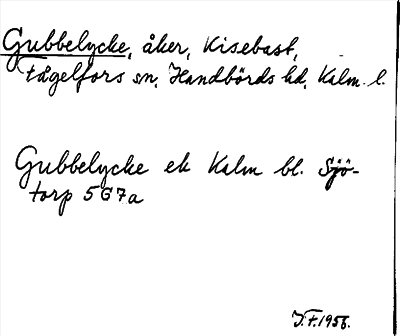 Gubbelycke, åker, Kisebast,
Fågelfors sn, Handbörds hd, Kalm. l.
Gubbelycke ek Kalm bl. Sjö-
torp 5G7a
J.F. 1956.